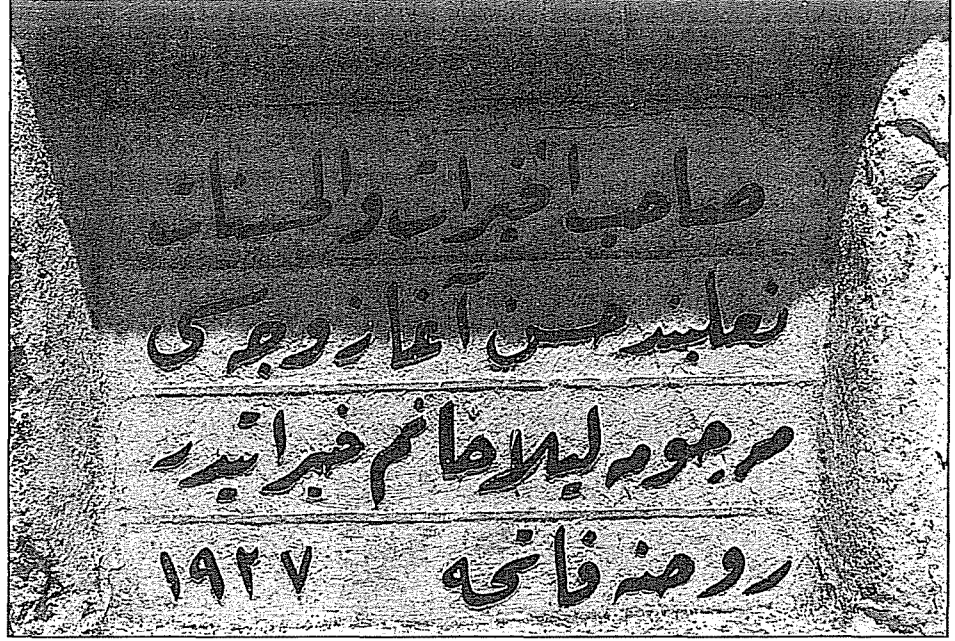 صاحب الخيرات والحسنات
نعلبند حسن آغا زوجه سی
مرحومه ليلا خانم خيراتيدر
روحنه فاتحه ١٩٢٧